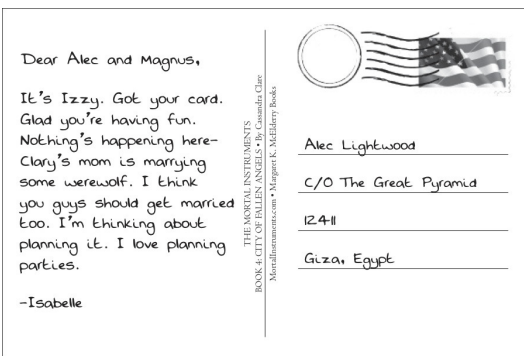 Dear Alec and Magnus,
It's Izzy. Got your card.
Glad you're having fun.
Nothing's happening here-
Clary's mom is marrying
some werewolf. I think
you guys should get married
too. I'm thinking about
planning it. I love planning
parties.
-Isabelle
THE MORTAL INSTRUMENTS
BOOK 4: CITY OF FALLEN ANGELS • By Cassandra Clare
MortalInstruments.com • Margaret K. McElderry Books
Alec Lightwood
C/O The Great Pyramid
12411
Giza, Egypt